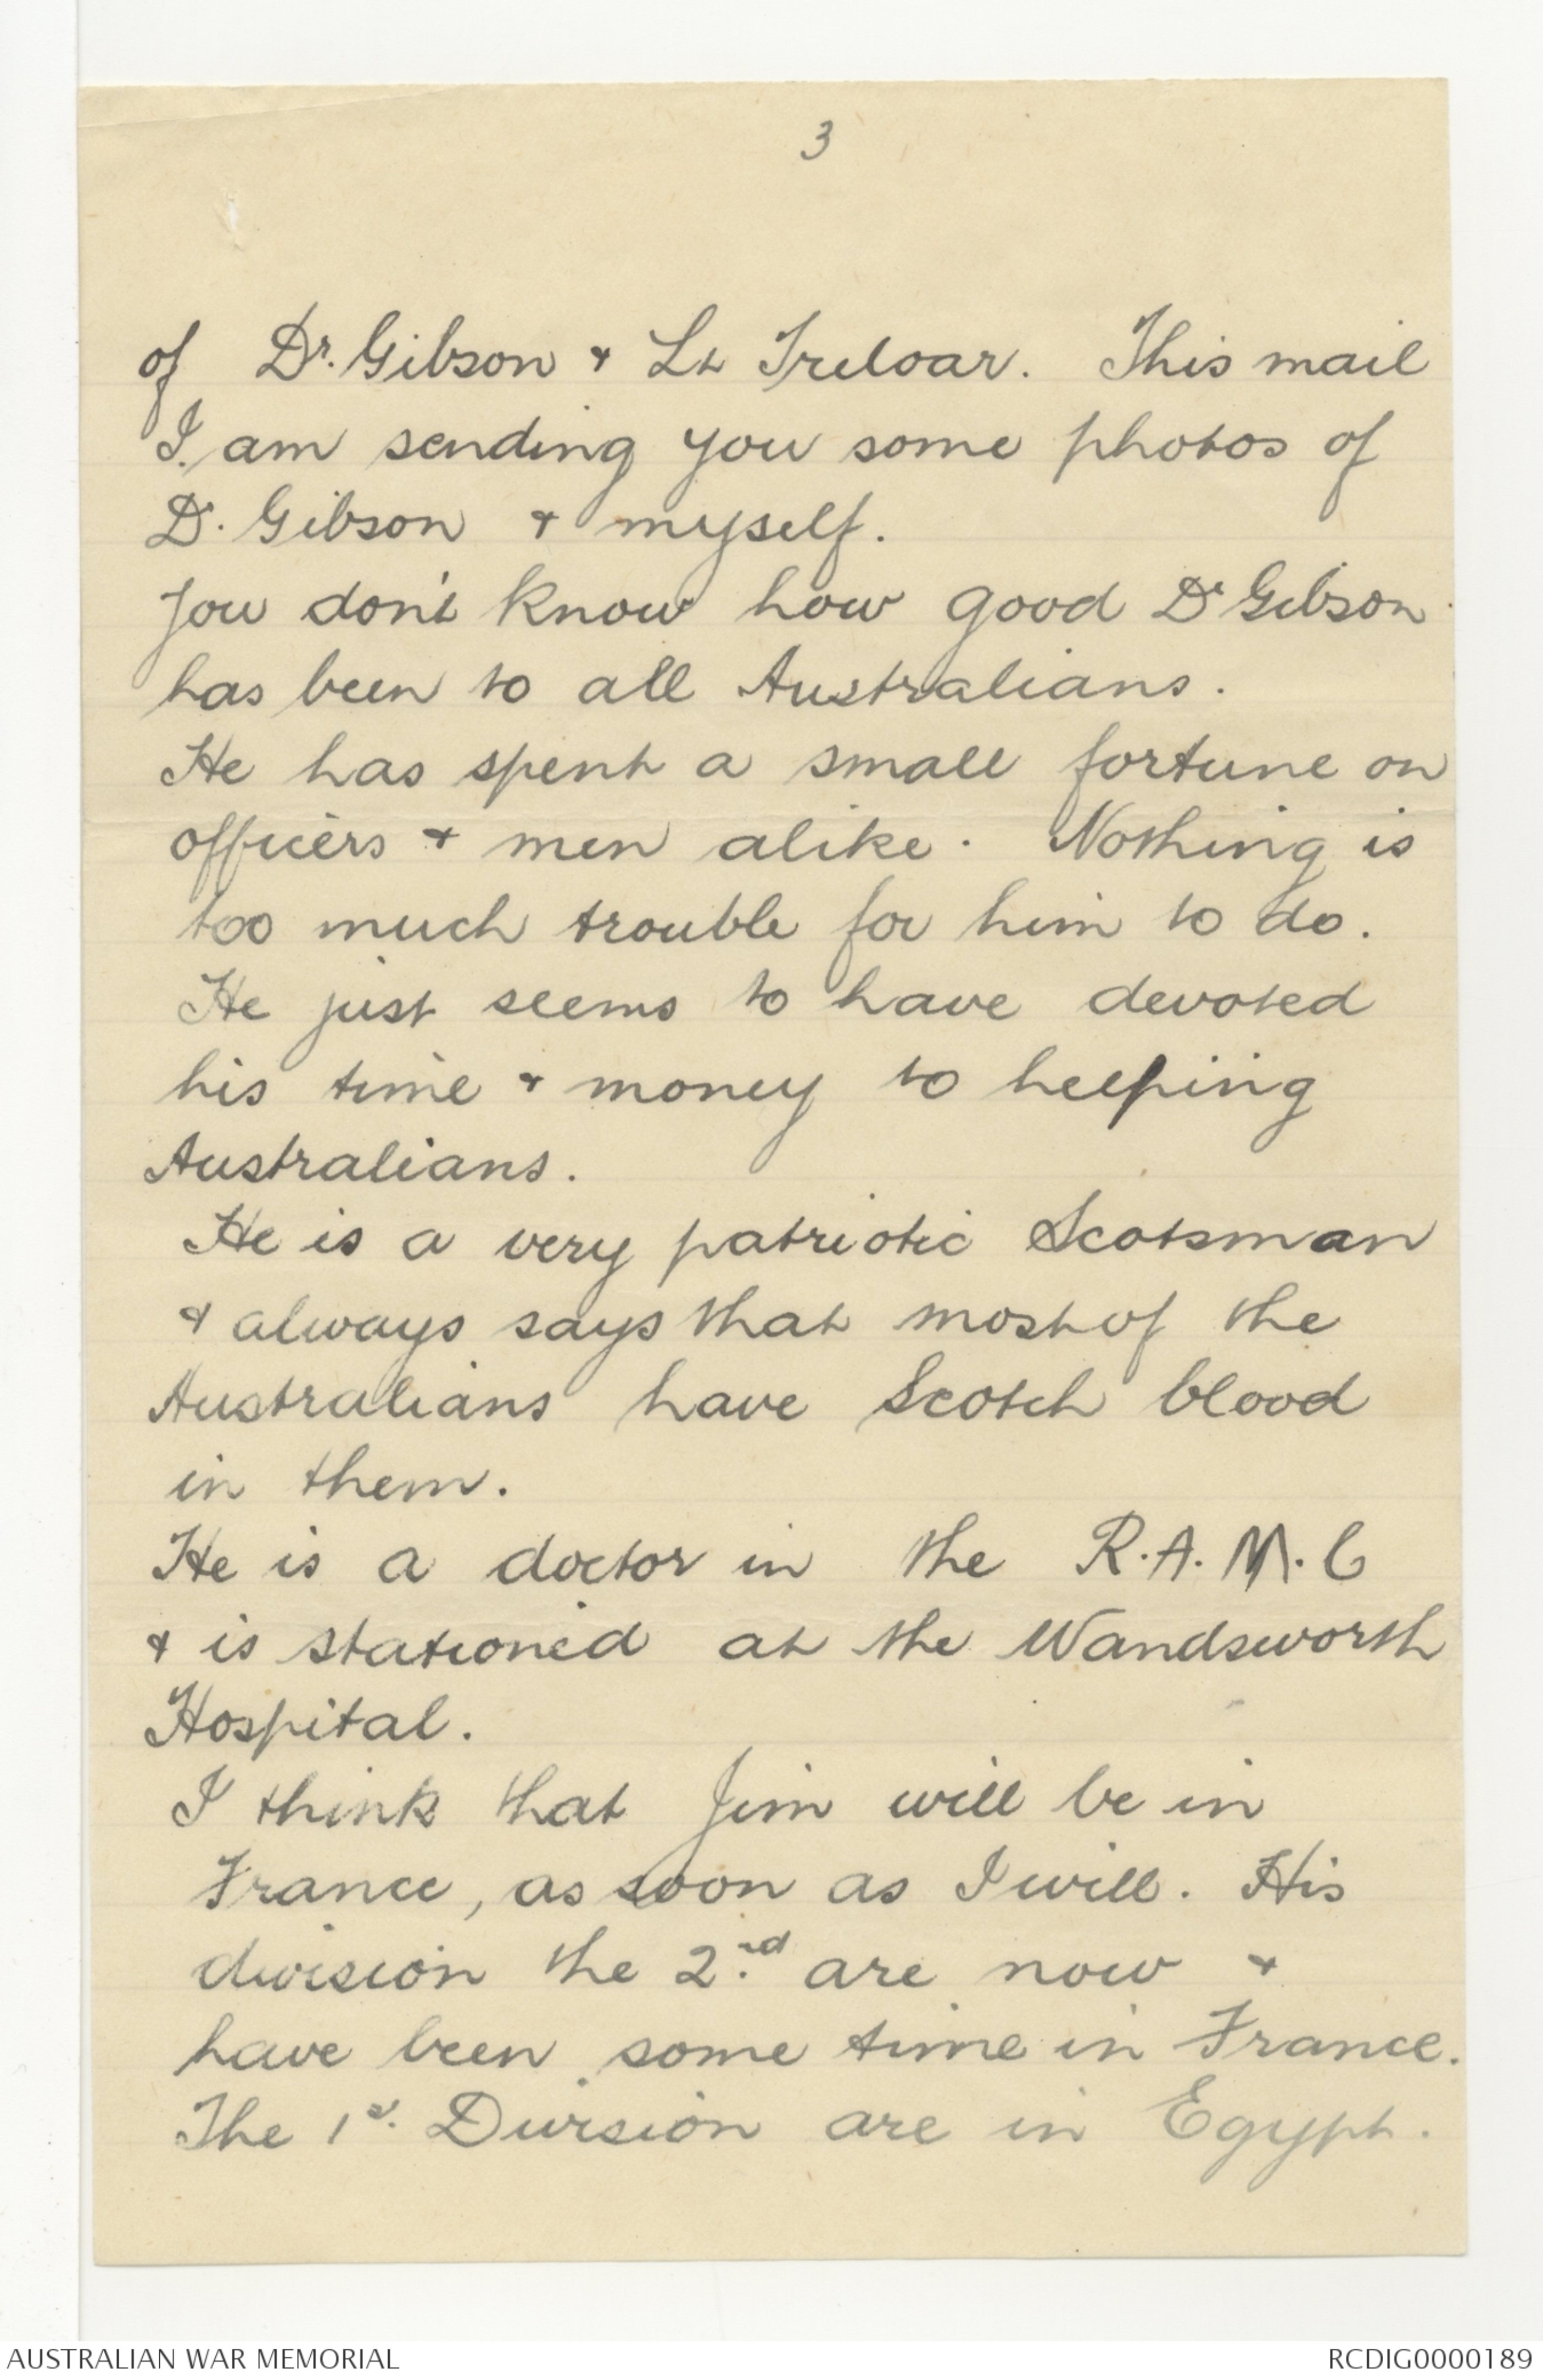 3
of Dr. Gibson & Lt Treloar. This mail
I am sending you some photos of
Dr. Gibson & myself.
You don't know how good Dr Gibson
has been to all Australians.
He has spent a small fortune on
officers & men alike. Nothing is
too much trouble for him to do.
He just seems to have devoted
his time & money to helping
Australians.
He is a very patriotic Scotsman
& always says that most of the
Australians have Scotch blood
in them.
He is a doctor in the R.A.M.C
& is stationed at the Wandsworth
Hospital.
I think that Jim will be in
France, as soon as I will. His
division the 2nd are now &
have been some time in France.
The 1st Division are in Egypt.
AUSTRALIAN WAR MEMORIAL
RCDIG0000189